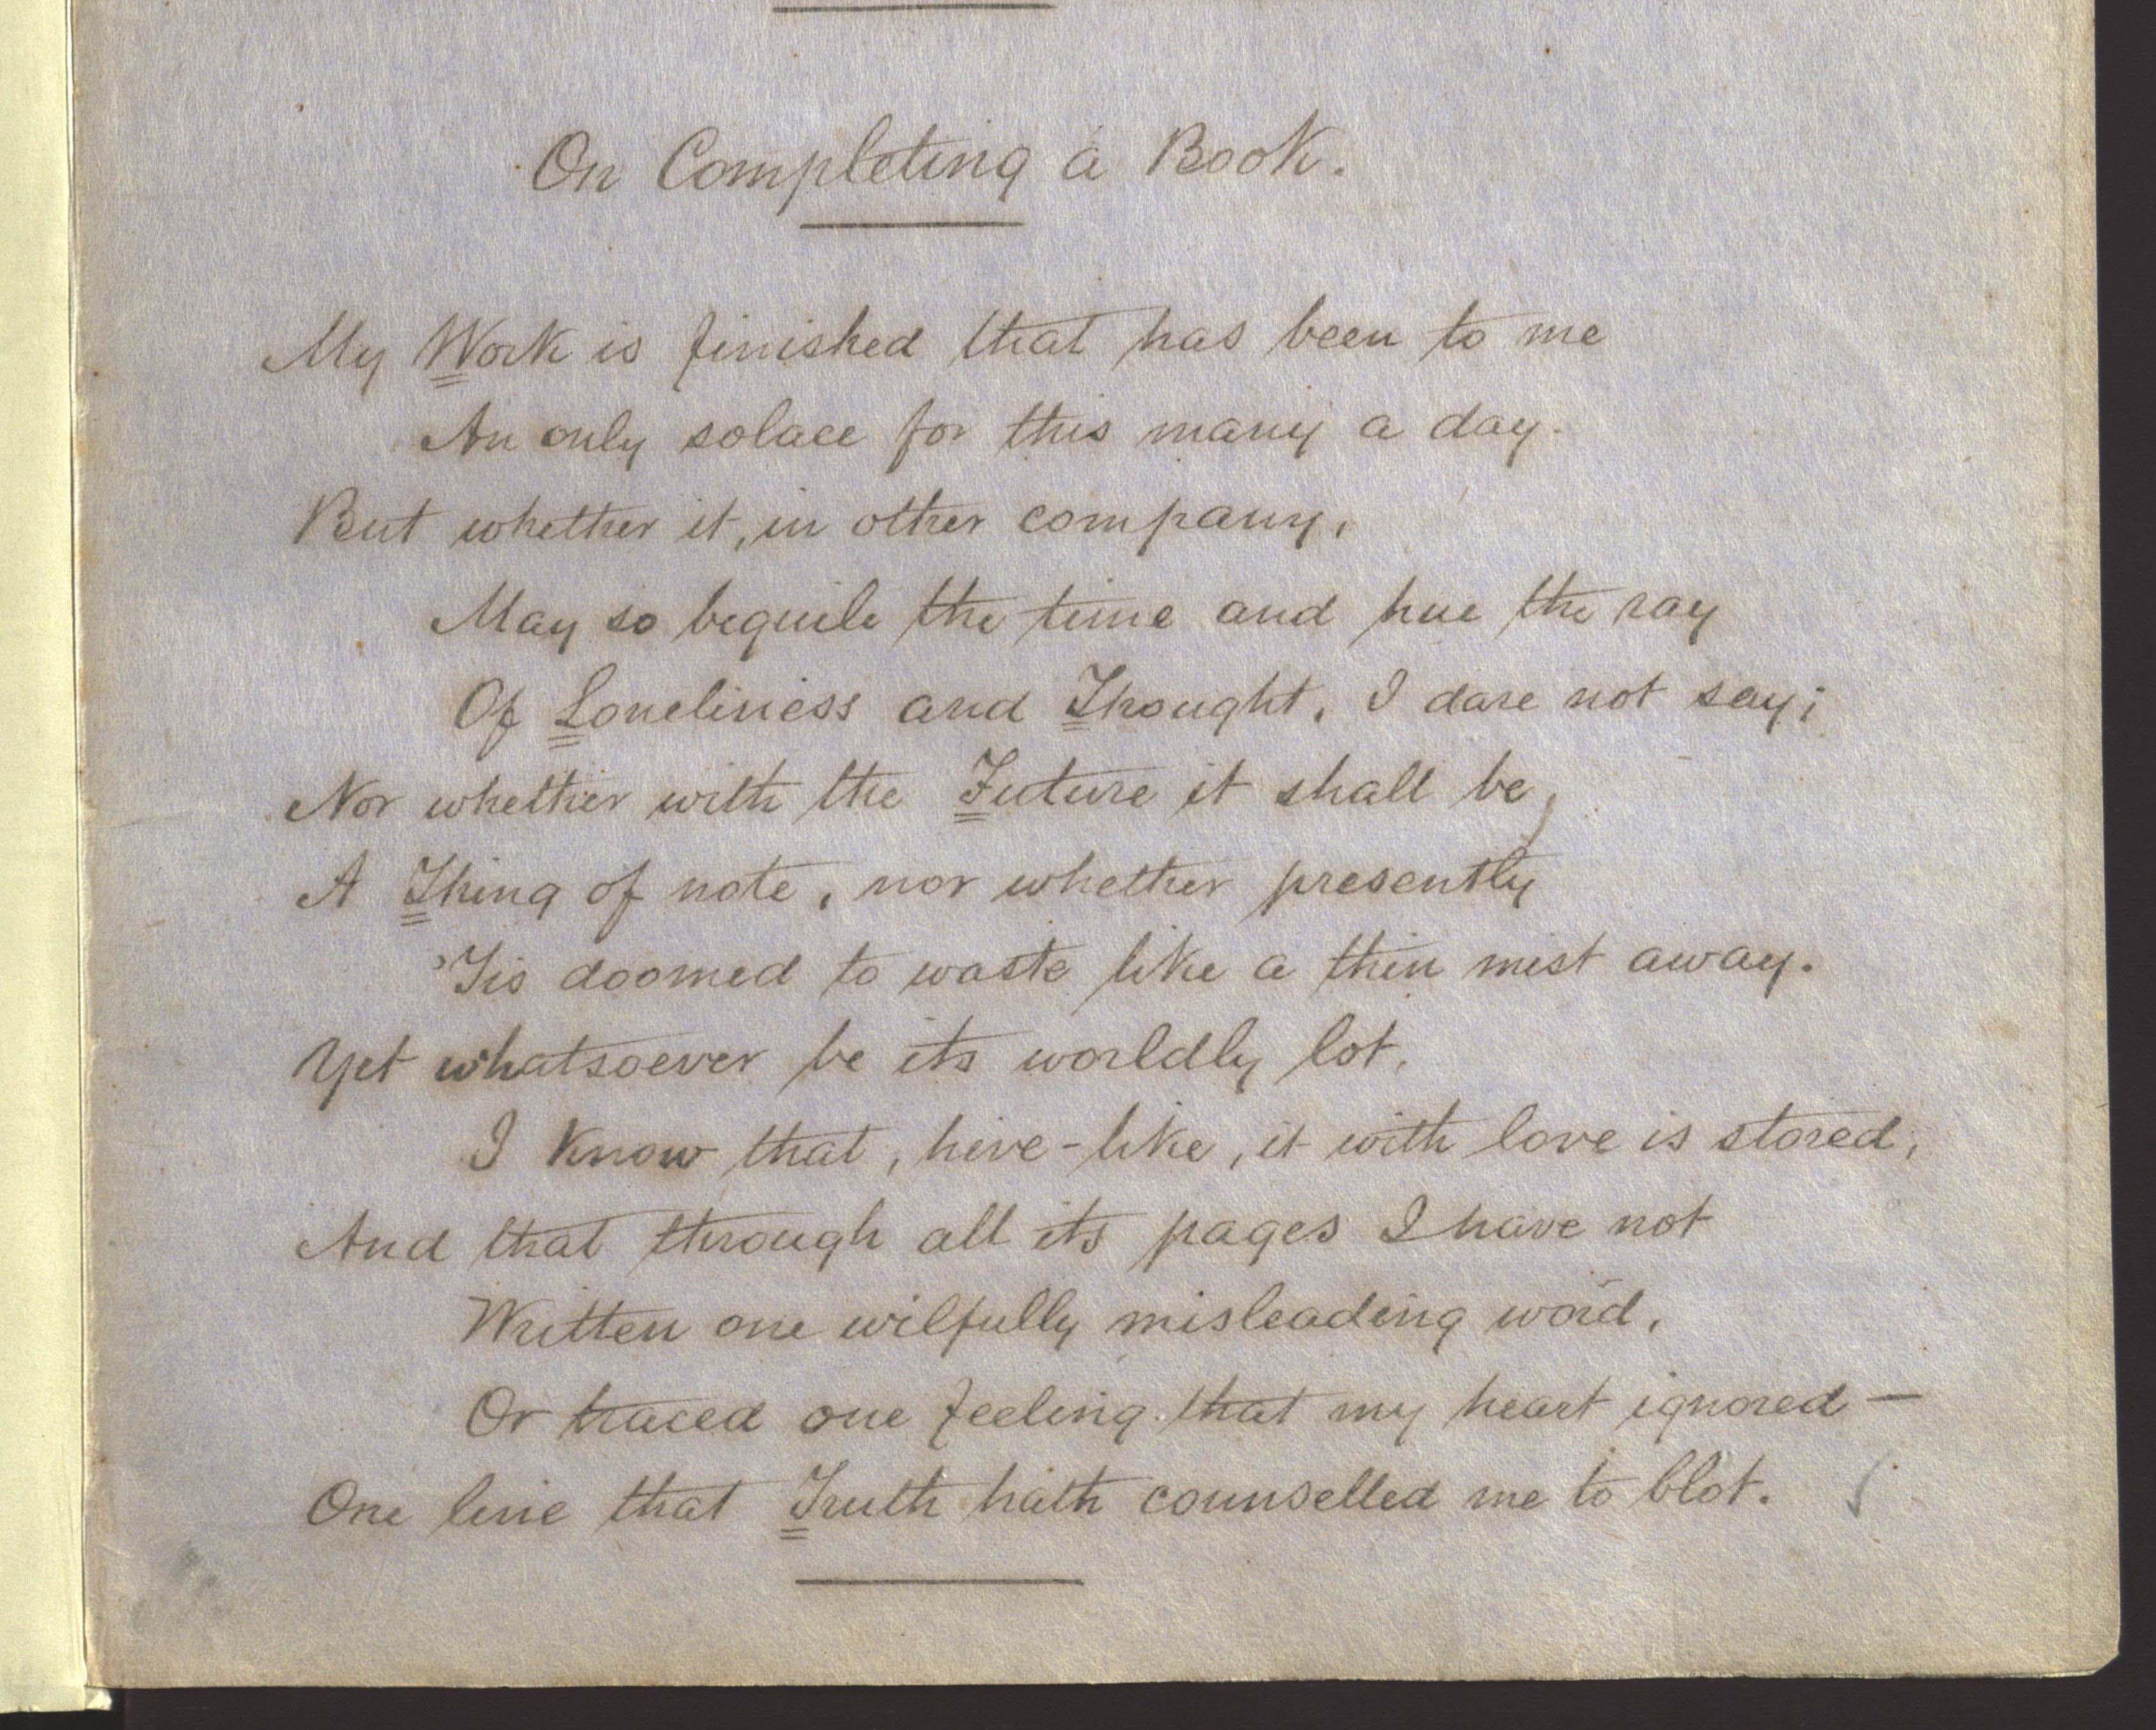 On Completing a Book.
My Work is finished that has been to me
An only solace for this many a day.
But whether it, in other company,
May so beguile the time and hue the ray
Of Loneliness and Thought, I dare not say;
Nor whether with the Future it shall be,
A Thing of note, nor whether presently
'Tis doomed to waste like a thin mist away.
Yet whatsoever be its worldly lot,
I know that, hive-like, it with love is stored,
And that through all its pages I have not
Written one wilfully misleading word,
Or traced one feeling that my heart ignored—
One line that Truth hath counselled me to blot.